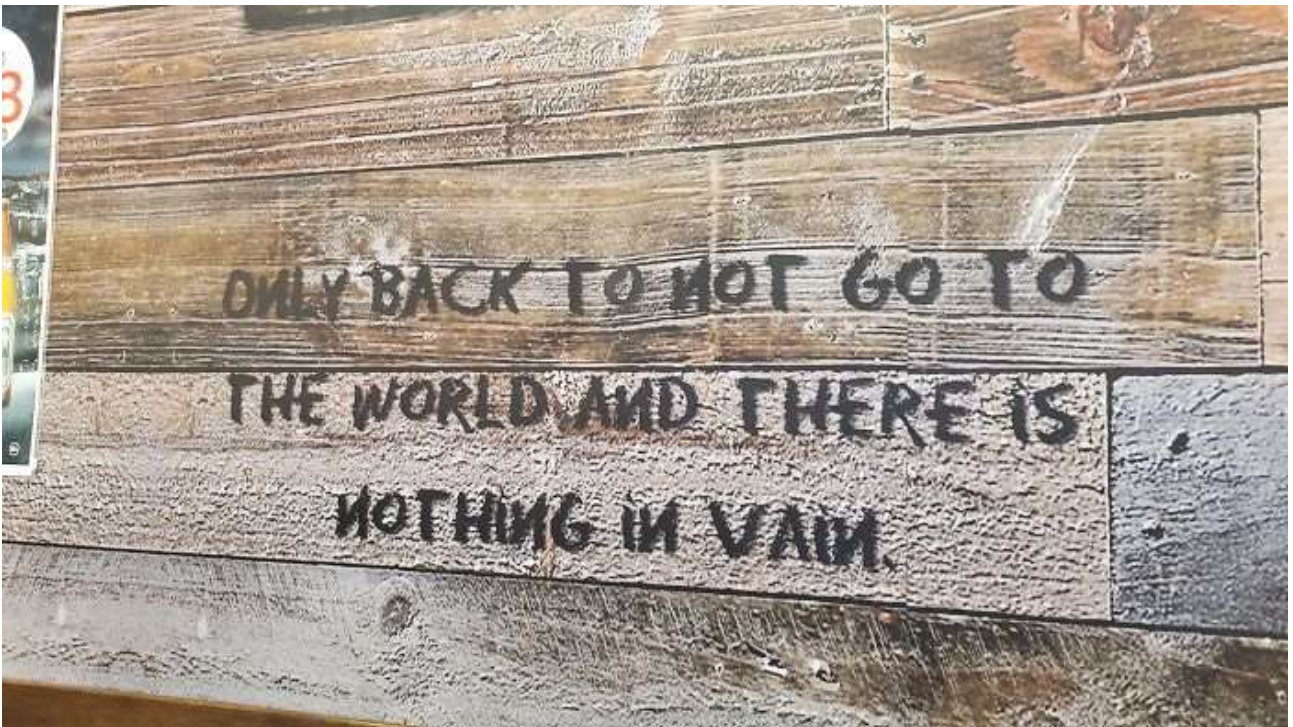 ONLY BACK TO NOT GO TO
THE WORLD AND THERE IS
NOTHING IN VAIN.